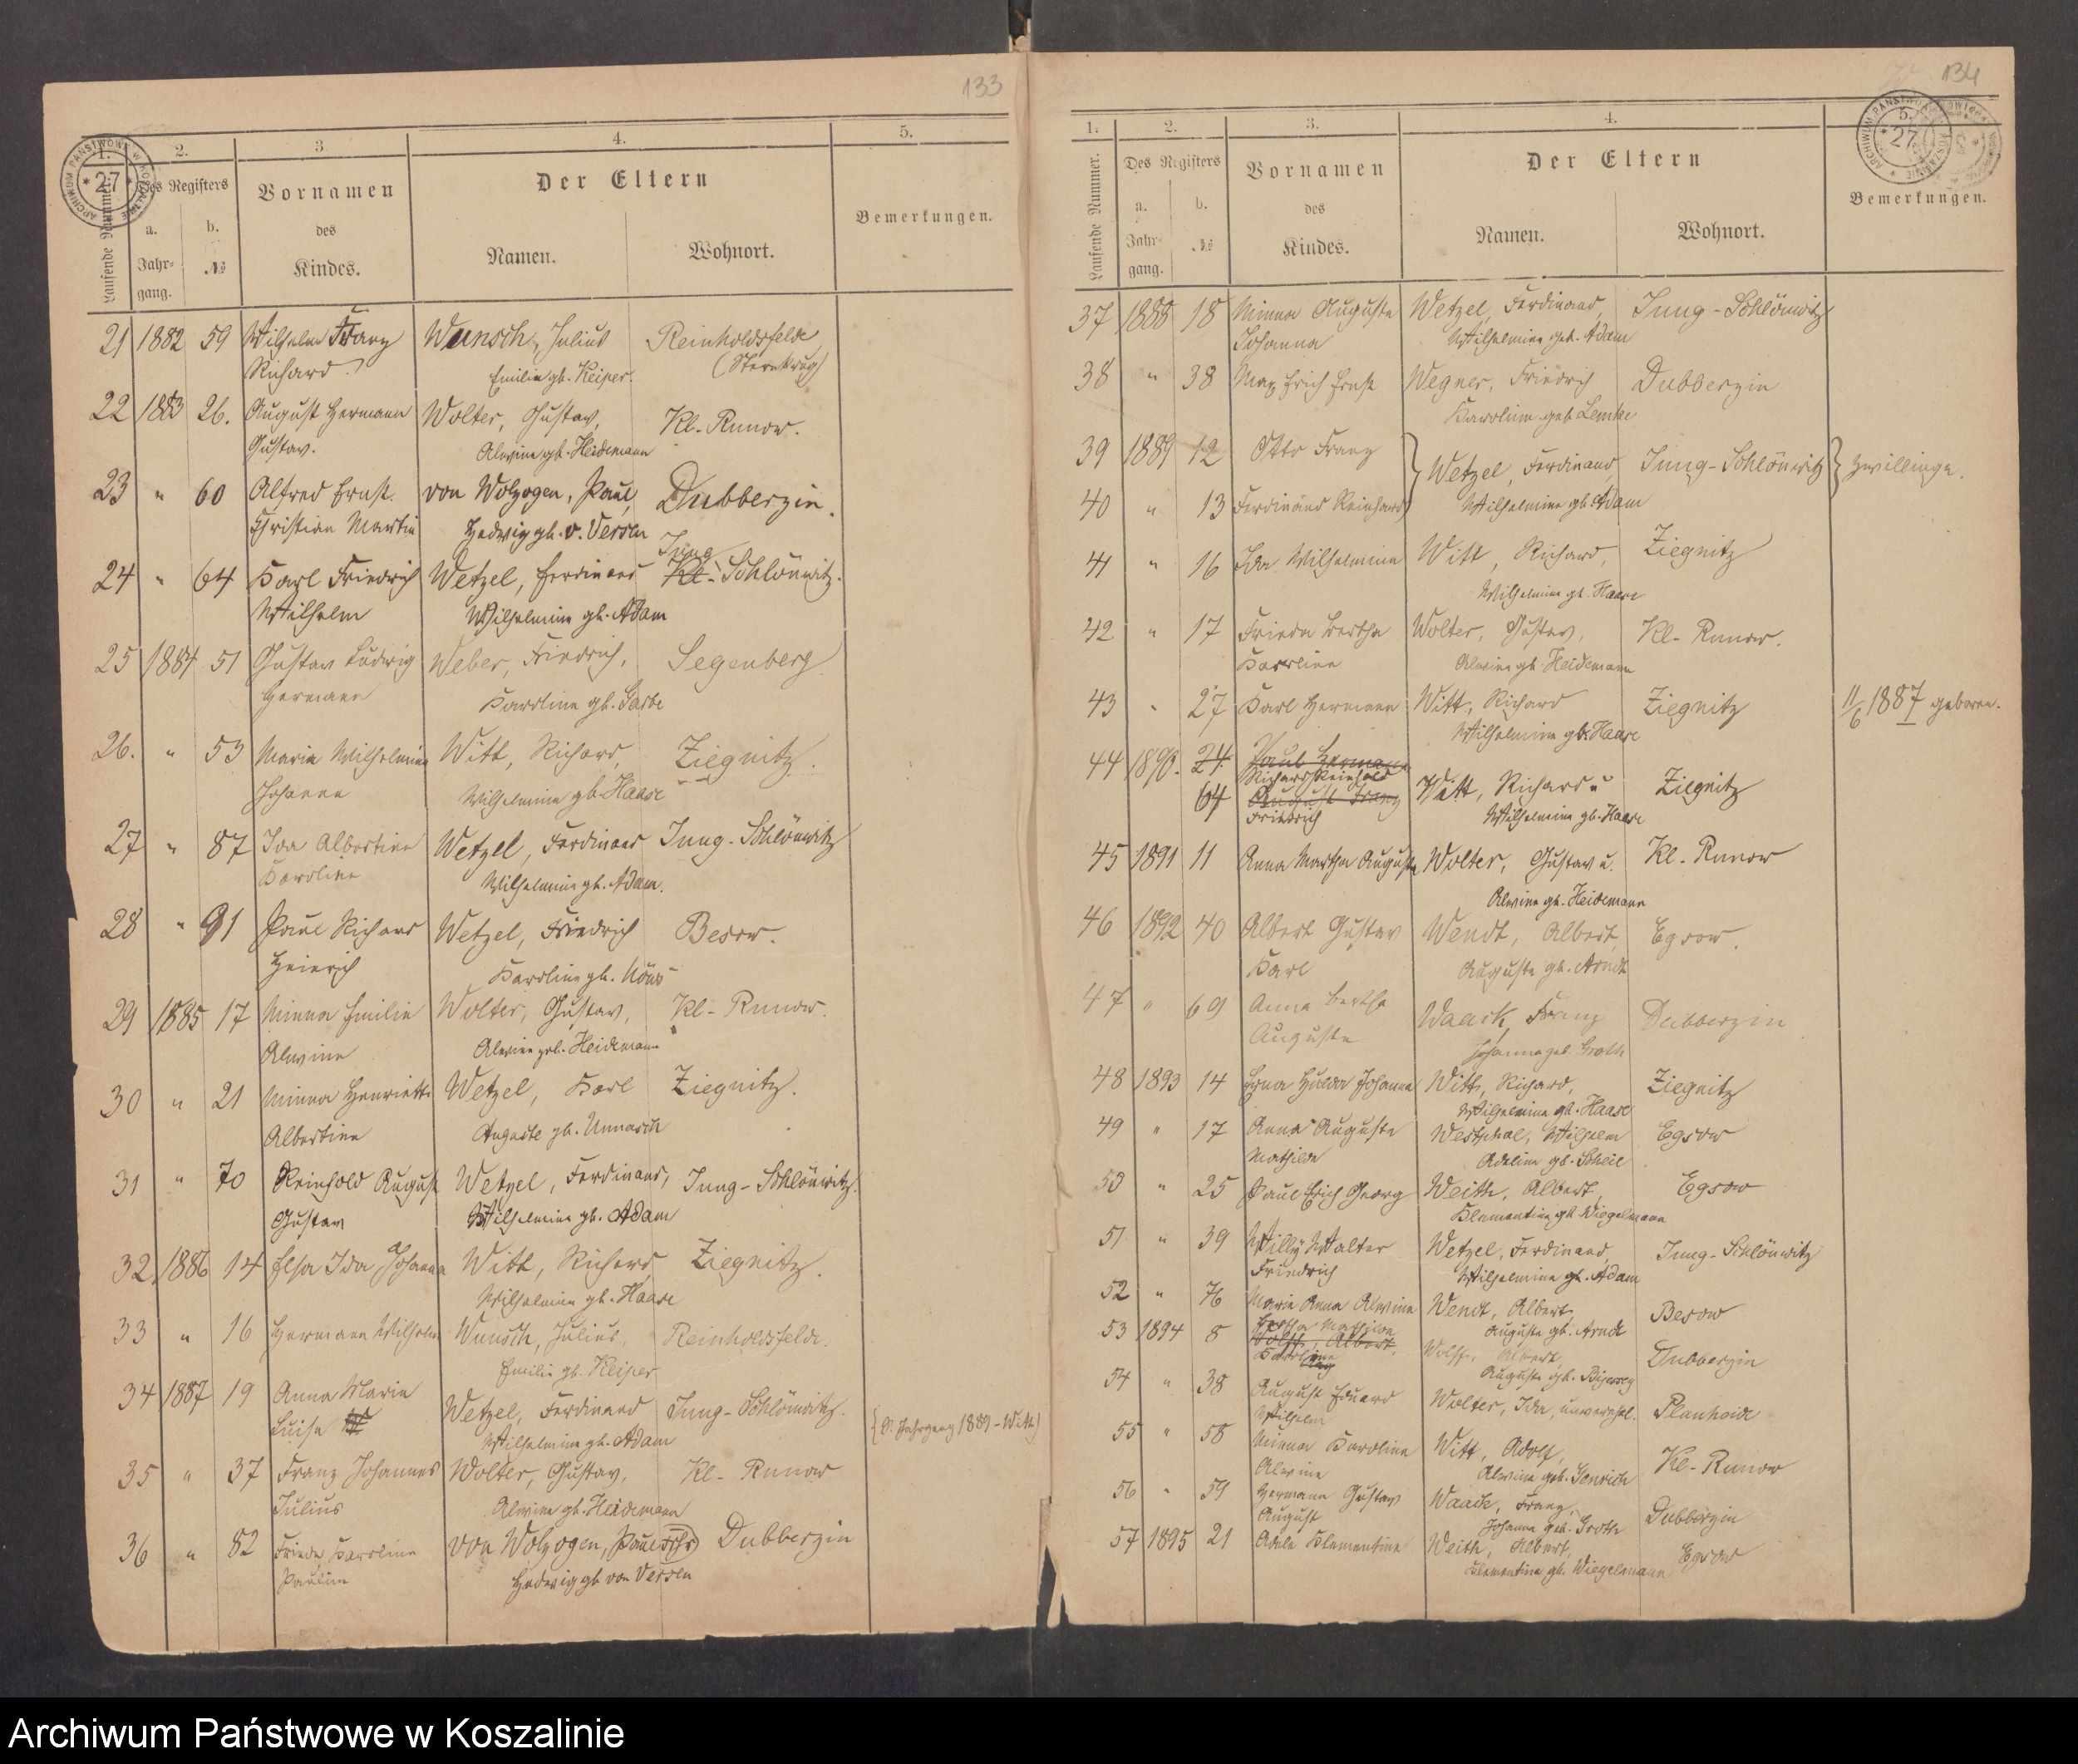 133
1.
2.
3
4.
5.
Laufende Nummer.
Des Registers
a.
b.
Jahr-
gang.
№
Vornamen
des
Kindes.
Der Eltern
Namen.
Wohnort.
Bemerkungen.
ARCHIWUM PAŃSTWOWE W KOSZALINIE
* 27 *
21 1882 59 Wilhelm Franz Wunsch, Julius Reinholdsfelde
Richard Emilie gb. Keiper. (Sternkrug)
22 1883 26. August Hermann Wolter, Gustav, Kl. Runow.
Gustav. Alwine gb. Heidemann
23 " 60 Alfred Ernst von Wolzogen, Paul, Dubberzin.
Christian Martin Hedwig gb. v. Versen
Jung
24 " 64 Karl Friedrich Wetzel, Ferdinand Kl. Schlönwitz.
Wilhelm Wilhelmine gb. Adam
25 1884 51 Gustav Ludwig Weber, Friedrich, Segenberg
Hermann Karoline gb. Garbe
26. " 53 Maria Wilhelmine Witt, Richard, Ziegnitz.
Johanne Wilhelmine gb. Haase
27 " 87 Ida Albertine Wetzel, Ferdinand Jung-Schlönwitz
Karoline Wilhelmine gb. Adam.
28 " 91 Paul Richard Wetzel, Friedrich Besow.
Heinrich Karoline gb.
29 1885 17 Minna Emilie Wolter, Gustav, Kl-Runow.
Alwine Alwine geb. Heidemann
30 " 21 Minna Henriette Wetzel, Karl Ziegnitz.
Albertine Auguste gb. Unnasch
31 " 70 Reinhold August Wetzel, Ferdinand, Jung-Schlönwitz.
Gustav Wilhelmine gb. Adam
32 1886 14 Elsa Ida Johanna Witt, Richard Ziegnitz.
Wilhelmine gb. Haase
33 " 16 Hermann Wilhelm Wunsch, Julius, Reinholdsfelde.
Emilie gb. Keiper
34 1887 19 Anna Maria Wetzel, Ferdinand Jung-Schlönwitz.
Luise Wilhelmine gb. Adam
Jahrgang 1889-Witt
35 " 37 Franz Johannes Wolter, Gustav, Kl-Runow
Julius Alwine gb. Heidemann
36 " 82 Frieda Karoline von Wolzogen, Paul Dubberzin
Pauline Hedwig gb. von Versen
134
1.
2.
3.
4.
5.
Laufende Nummer.
Des Registers
a.
b.
Jahr-
gang.
№
Vornamen
des
Kindes.
Der Eltern
Namen.
Wohnort.
Bemerkungen.
ARCHIWUM PAŃSTWOWE W KOSZALINIE
* 27 *
37 1888 18 Minna Auguste Wetzel, Ferdinand, Jung-Schlönwitz
Johanna Wilhelmine geb. Adam
38 " 38 Max Erich Ernst Wegner, Friedrich Dubberzin
Karoline geb. Lemke
39 1889 12 Otto Franz Wetzel, Ferdinand, Jung-Schlönwitz Zwillinge.
40 " 13 Ferdinand Reinhard Wilhelmine gb. Adam
41 " 16 Ida Wilhelmine Witt, Richard, Ziegnitz
Wilhelmine gb. Haase
42 " 17 Frieda Bertha Wolter, Gustav, Kl-Runow.
Karoline Alwine gb. Heidemann
43 " 27 Karl Hermann Witt, Richard Ziegnitz 11/6 1887 geboren.
Wilhelmine gb. Haase
44 1890. 24. Paul Hermann
Richard Reinhold
64 August Franz Witt, Richard u Ziegnitz
Friedrich Wilhelmine gb. Haase
45 1891 11 Anna Martha Auguste Wolter, Gustav u. Kl-Runow
Alwine gb. Heidemann
46 1892 40 Albert Gustav Wendt, Albert, Egsow.
Karl Auguste gb. Arndt
47 " 69 Anna Bertha Waack, Franz Dubberzin
Auguste Johanna geb. Groth
48 1893 14 Erna Hulda Johanna Witt, Richard, Ziegnitz
Wilhelmine gb. Haase
49 " 17 Anna Auguste Westphal, Wilhelm Egsow
Mathilde Adeline gb. Scheil
50 " 25 Paul Erich Georg Weith, Albert, Egsow
Klementine gb. Wiegelmann
51 " 39 Willy Walter Wetzel, Ferdinand, Jung-Schlönwitz
Friedrich Wilhelmine gb. Adam
52 " 76 Marie Anna Alwine Wendt, Albert, Besow
Auguste gb. Arndt
53 1894 8 Hertha Mathilde
Wolff, Albert, Wolff, Albert, Dubberzin
Karoline Auguste gb.
54 " 38 August Eduard Wolter, Ida, unverehel. Planheide
Wilhelm
55 " 58 Minna Karoline Witt, Adolf, Kl-Runow
Alwine Alwine geb.
56 " 59 Hermann Gustav Waack, Franz, Dubberzin
August Johanna geb. Groth
57 1895 21 Adele Klementine Weith, Albert, Egsow
Klementine gb. Wiegelmann
Archiwum Państwowe w Koszalinie